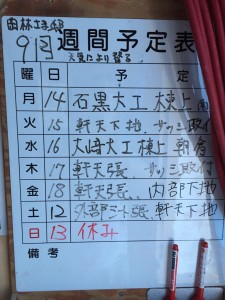 9月 週間予定表
天気により替る
曜 日 予 定
月 14 石黒大工 棟上
火 15 軒天下地、サッシ取付
水 16 大工棟上
木 17 軒天張、サッシ取付
金 18 軒天張、内部下地
土 12 外部シート張、軒天下地
日 13 休み
備考